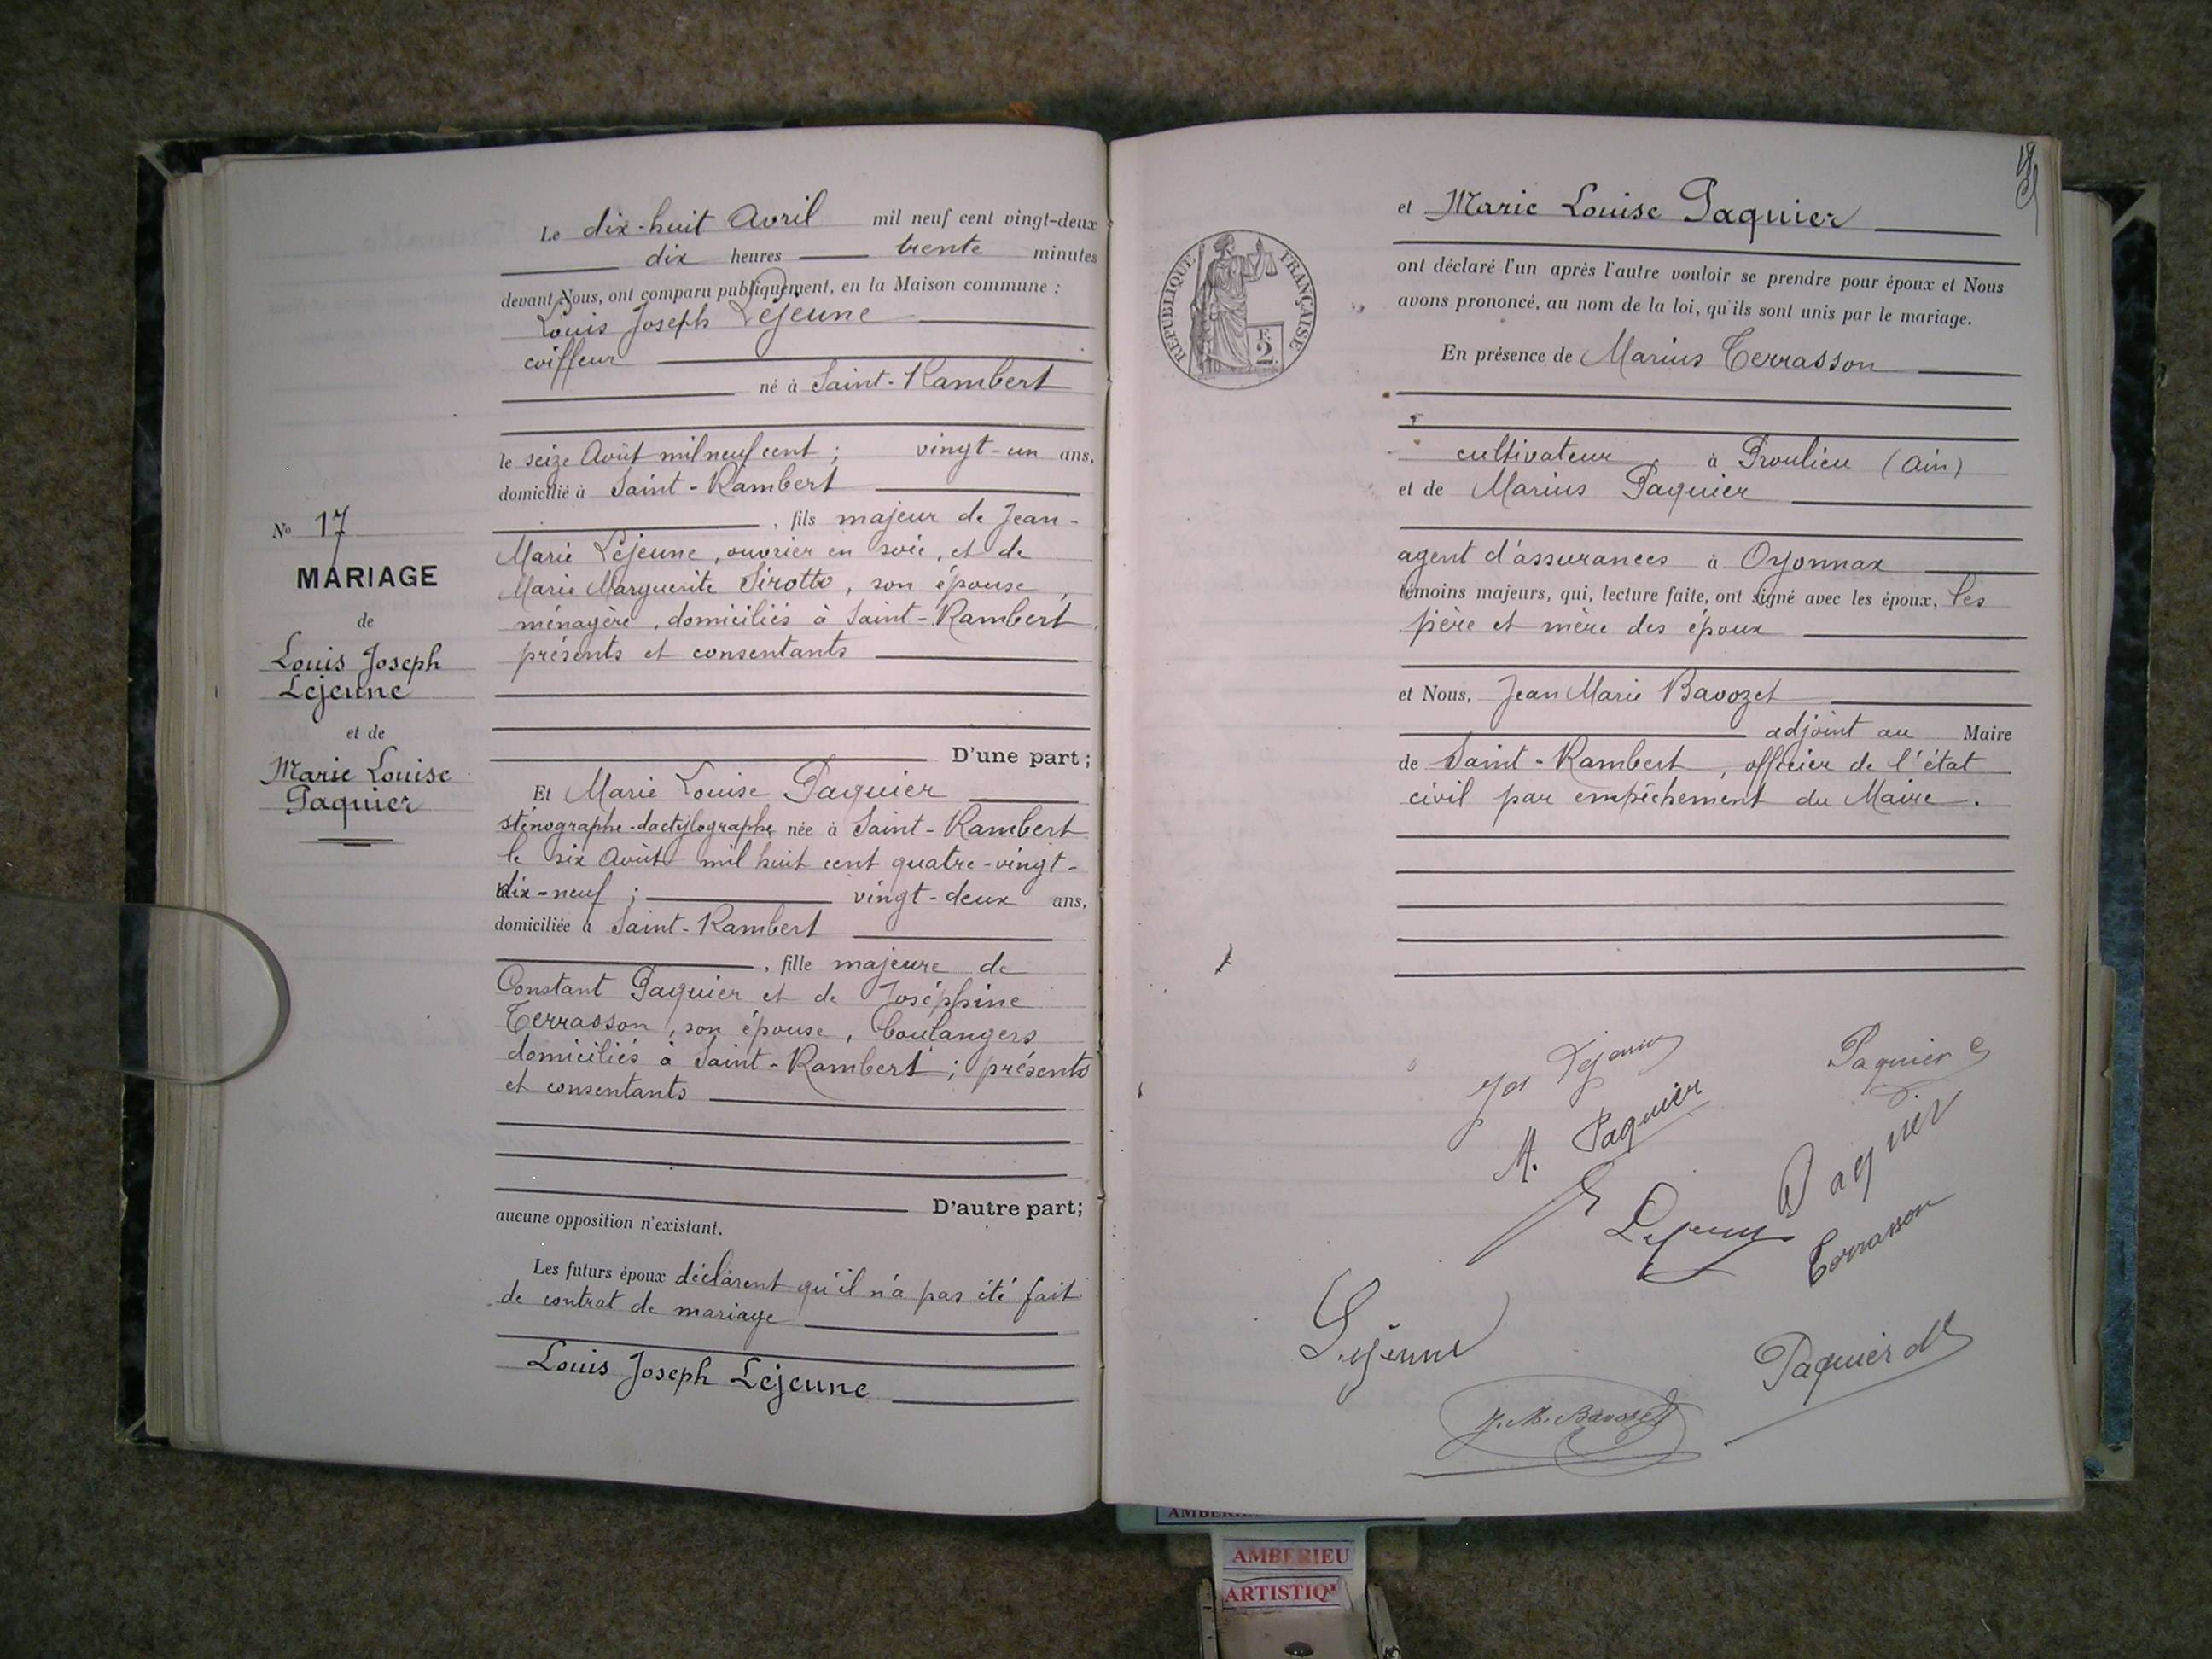 Le dix-huit Avril mil neuf cent vingt-deux
dix heures trente minutes
devant Nous, ont comparu publiquement, en la Maison commune :
Louis Joseph Lejeune
coiffeur
né à Saint-Rambert
le seize Août mil neuf cent ; vingt-un ans,
domicilié à Saint-Rambert
, fils majeur de Jean-
Marie Lejeune, ouvrier en soie, et de
Marie Marguerite Sirotto, son épouse,
ménagère, domiciliés à Saint-Rambert,
présents et consentants
D'une part ;
Et Marie Louise Paquier
sténographe-dactylographe, née à Saint-Rambert
le six Août mil huit cent quatre-vingt-
dix-neuf ; vingt-deux ans,
domiciliée à Saint-Rambert
, fille majeure de
Constant Paquier et de Joséphine
Terrasson, son épouse, boulangers
domiciliés à Saint-Rambert ; présents
et consentants
D'autre part;
aucune opposition n'existant.
Les futurs époux déclarent qu'il n'a pas été fait
de contrat de mariage
Louis Joseph Lejeune
No 17
MARIAGE
de
Louis Joseph
Lejeune
et de
Marie Louise
Paquier
et Marie Louise Paquier
ont déclaré l'un après l'autre vouloir se prendre pour époux et Nous
avons prononcé, au nom de la loi, qu'ils sont unis par le mariage.
En présence de Marius Terrasson
cultivateur, à Proulieu (Ain)
et de Marius Paquier
agent d'assurances à Oyonnax
témoins majeurs, qui, lecture faite, ont signé avec les époux, les
père et mère des époux
et Nous, Jean Marie Bavozet
adjoint au Maire
de Saint-Rambert, officier de l'état
civil par empêchement du Maire.
RÉPUBLIQUE FRANÇAISE
F.
2
Lejeune
Paquier C
M. Paquier
Paquier
Lejeune
Terrasson
Lejeune
Paquier
J. M. Bavozet
AMBERIEU
ARTISTIQ